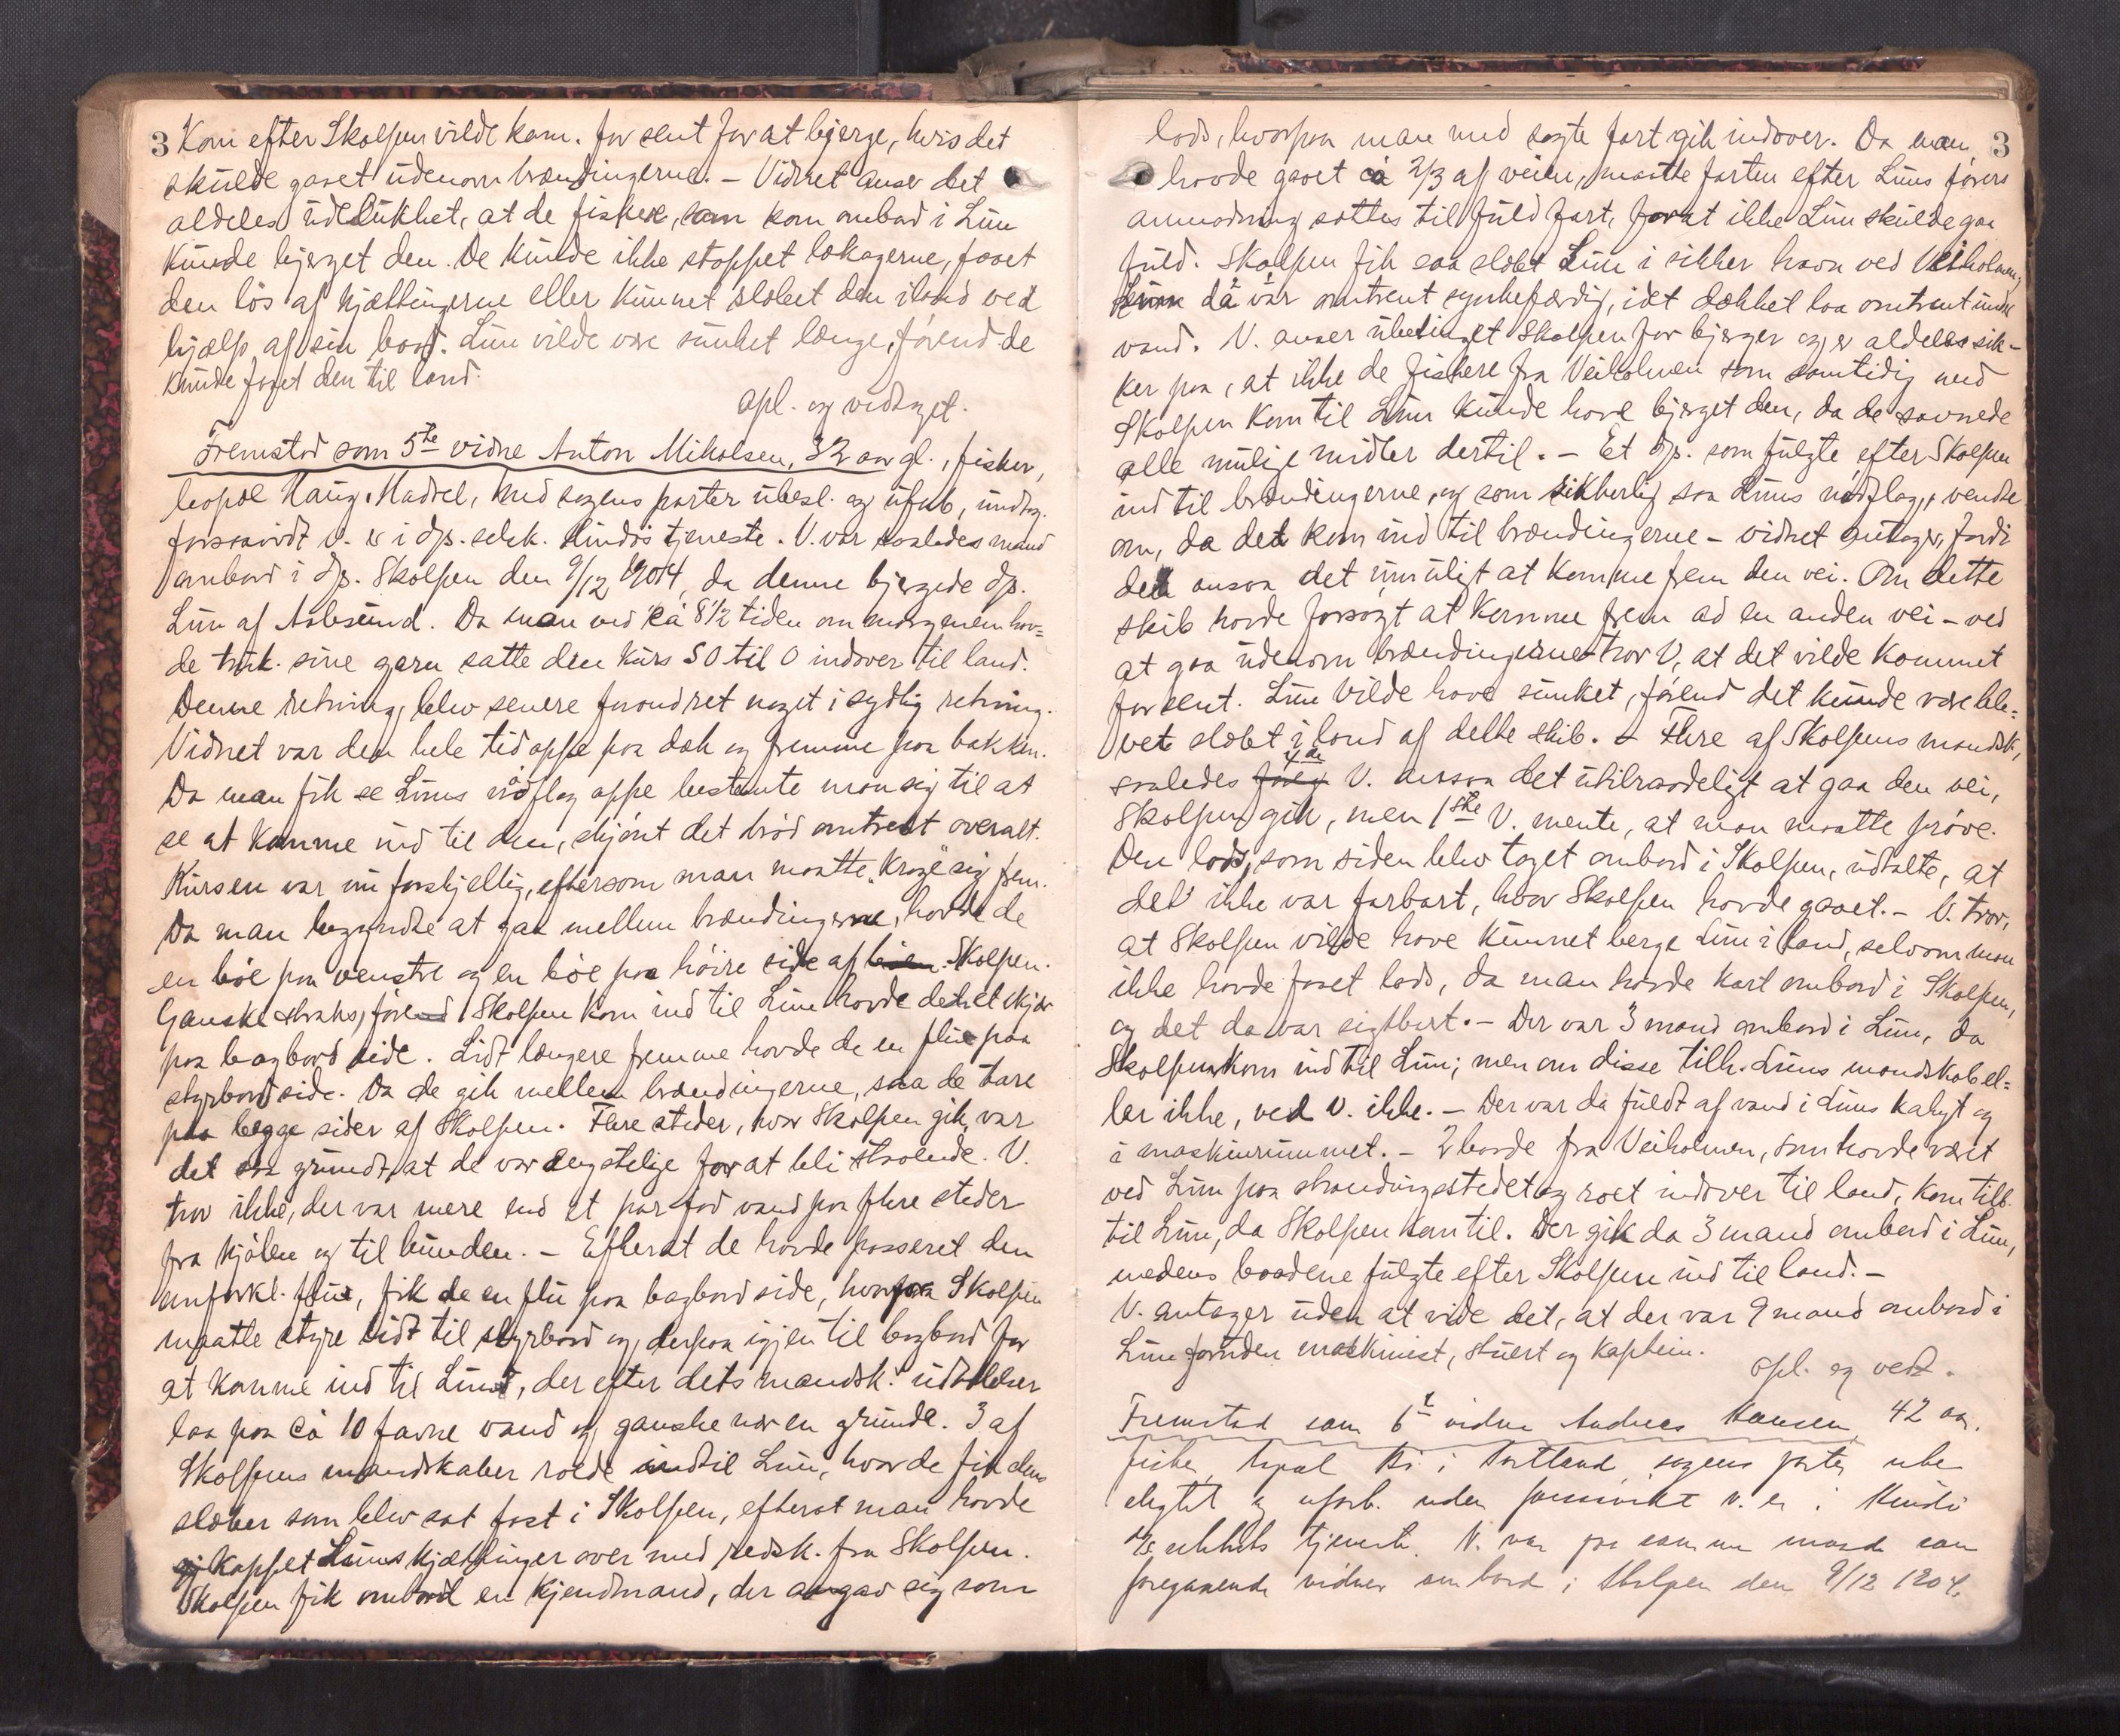 3 Kom efter Skolpen vilde kom. for sent for at bjerge, hvis det
skulde gaaet udenom brændingerne. – Vidnet anser det
aldeles udelukket, at de fiskere, som kom ombord i Lun
kunde bjerget den. De kunde ikke stoppet lækagerne, faaet
den løs af kjættingerne eller kunnet slæbet den iland ved
hjælp af sin baad. Lun vilde være sunket længe, førend de
kunde faaet den til land.
opl. og vedtaget.
Fremstod som 5te vidne Anton Mikalsen, 32 aar gl., fisker,
bopæl Haug, Hadsel, med sagens parter ubesl. og ufsb, undtag.
forsaavidt v. er i dp. selsk. Kindøs tjeneste. V. var saaledes mand
ombord i dp. Skolpen den 9/12 1904, da denne bjergede dp.
Lun af Aalesund. Da man ved ca 8 1/2 tiden om morgenen hav=
de truk. sine garn satte den kurs SO til O indover til land.
Denne retning blev senere forandret noget i sydlig retning.
Vidnet var den hele tid oppe paa dæk og fremme paa bakken.
Da man fik se Luns nødflag oppe bestemte man sig til at
se at komme ind til den, skjønt det brød omtrent overalt.
Kursen var nu forskjellig, eftersom man maatte "krøge" sig frem.
Da man begyndte at gaa mellem brændingerne, havde de
en bøe paa venstre og en bøe paa høire side af Skolpen.
Ganske straks, førend Skolpen kom ind til Lun havde de et skjær
paa bagbord side. Lidt længere fremme havde de en flu paa
styrbord side. Da de gik mellem brændingerne, saa de tare
paa begge sider af Skolpen. Flere steder, hvor Skolpen gik, var
det saa grundt, at de var engstelige for at bli staaende. V.
tror ikke, der var mere end et par fod vand paa flere steder
fra kjølen og til bunden. – Efterat de havde passeret den
omforkl. flu, fik de en flu paa bagbord side, hvorfor Skolpen
maatte styre lidt til styrbord og derpaa igjen til bagbord for
at komme ind til Lun, der efter dets mandsk. udtalelser
laa paa ca 10 favne vand og ganske nær en grunde. 3 af
Skolpens mandskaber roede indtil Lun, hvor de fik dens
slæber som blev sat fast i Skolpen, efterat man havde
kappet Luns kjættinger over med redsk. fra Skolpen.
Skolpen fik ombord en kjendmand, der angav sig som
3
lods, hvorpaa man med sagte fart gik indover. Da man
havde gaaet ca 2/3 af veien, maatte farten efter Luns førers
anmodning sættes til fuld fart, forat ikke Lun skulde gaa
fuld. Skolpen fik saa slæbt Lun i sikker havn ved Veiholmen,
da var omtrent synkefærdig, idet dækket laa omtrent under
vand. V. anser ubetinget Skolpen for bjerger og er aldeles sik-
ker paa, at ikke de fiskere fra Veiholmen som samtidig med
Skolpen kom til Lun kunde have bjerget den, da de savnede
alle mulige midler dertil. – Et dp. som fulgte efter Skolpen
ind til brændingerne, og som sikkerlig saa Luns nødflag, vendte
om, da det kom ind til brændingerne – vidnet antager, fordi
det ansaa det umuligt at komme frem den vei. Om dette
skib havde forsøgt at komme frem ad en anden vei – ved
at gaa udenom brændingerne – tror V, at det vilde kommet
for sent. Lun vilde have sunket, førend det kunde være ble=
vet slæbt i land af dette skib. – Flere af Skolpens mandsk,
saaledes 4de V. ansaa det utilraadeligt at gaa den vei,
Skolpen gik, men 1ste V. mente, at man maatte prøve.
Den lods, som siden blev taget ombord i Skolpen, udtalte, at
det ikke var farbart, hvor Skolpen havde gaaet. – V. tror,
at Skolpen vilde have kunnet berge Lun i land, selv om man
ikke havde faaet lods, da man havde kart ombord i Skolpen,
og det da var sigtbart. – Der var 3 mand ombord i Lun, da
Skolpen kom ind til Lun; men om disse tilh. Luns mandskab el=
ler ikke, ved v. ikke. – Der var da fuldt af vand i Luns kahyt og
i maskinrummet. – 2 baade fra Veiholmen, som havde været
ved Lun paa strandingsstedet og roet indover til land, kom tilb.
til Lun, da Skolpen kom til. Der gik da 3 mand ombord i Lun,
medens baadene fulgte efter Skolpen ind til land. –
V. antager uden at vide det, at der var 9 mand ombord i
Lun foruden maskinist, stuert og kaptein.
opl. og vedt.
Fremstod som 6te vidne Andreas Hansen 42 aar.
fisker, bopæl Bø i sagens parter ube
slegtet og uforb. uden forsavidt v. er i Kindø
selskabs tjeneste. V. var paa samme maade som
foregaaende vidner ombord i Skolpen den 9/12 1904.